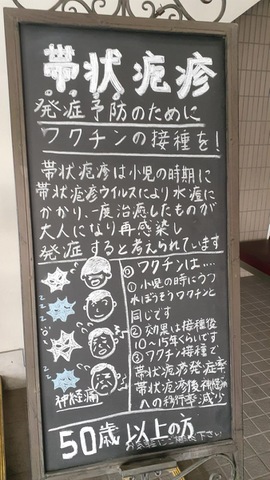 帯状疱疹
発症予防のために
ワクチンの接種を！
帯状疱疹は小児の時期に
帯状疱疹ウイルスにより水痘に
かかり、一度治癒したものが
大人になり再感染し
発症すると考えられています
ワクチンは…
①小児の時にうつ
水ぼうそうワクチンと
同じです
②効果は接種後
10〜15年くらいです
③ワクチン接種で
帯状疱疹発症率
帯状疱疹後神経痛
への移行率減少
神経痛
50歳以上の方
下さい